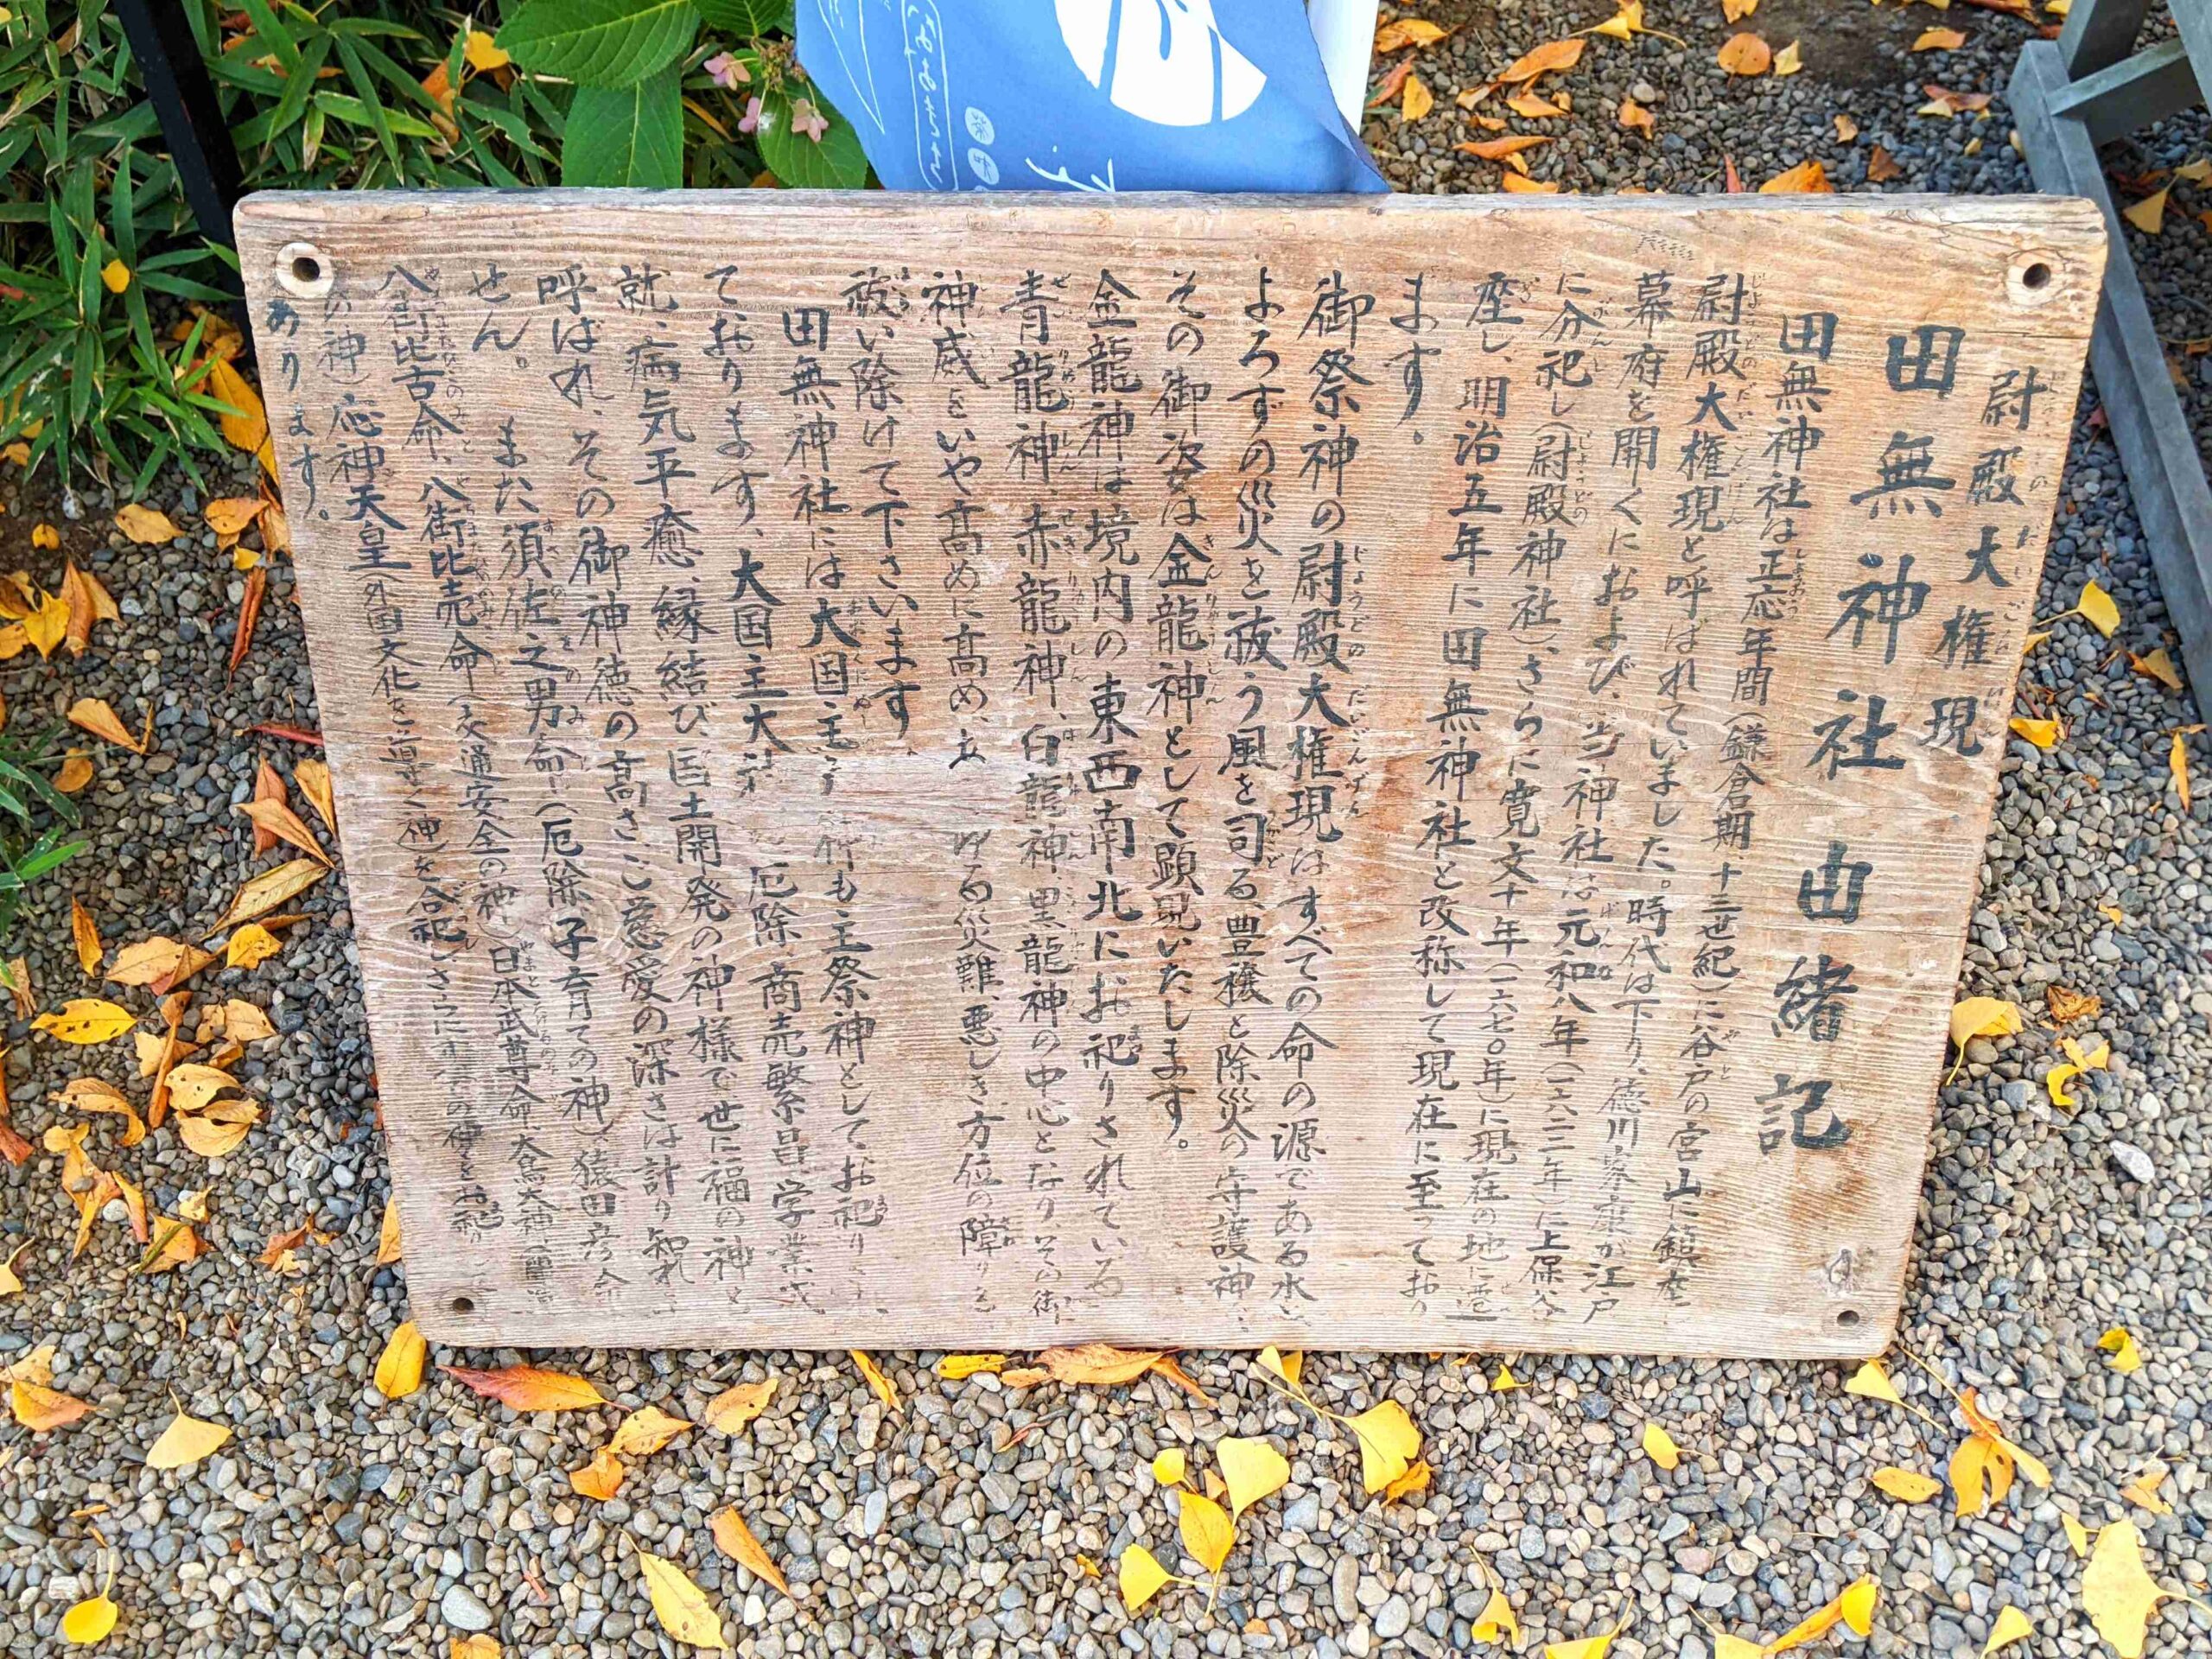 尉殿大権現
田無神社由緒記
田無神社は正応年間(鎌倉期、十三世紀)に谷戸の宮山に鎮座し
尉殿大権現と呼ばれていました。時代は下り、徳川家康が江戸
幕府を開くにおよび、当神社は元和八年(一六二二年)に上保谷
に分祀し(尉殿神社)、さらに寛文十年(一六七〇年)に現在の地に遷
座し、明治五年に田無神社と改称して現在に至っており
ます。
御祭神の尉殿大権現はすべての命の源である水と
よろずの災を祓う風を司る、豊穣と除災の守護神で
その御姿は金龍神として顕現いたします。
金龍神は境内の東西南北にお祀りされている
青龍神、赤龍神、白龍神、黒龍神の中心となり、その御
神威をいや高めに高め、 ゆる災難、悪しき方位の障りを
祓い除けて下さいます。
田無神社には大国主 も主祭神としてお祀りし
ております、大国主大 厄除、商売繁昌、学業成
就、病気平癒、縁結び、国土開発の神様で世に福の神と
呼ばれ、その御神徳の高さ、ご慈愛の深さは計り知れま
せん。また須佐之男命(厄除、子育ての神)、猿田彦命
八街比古命、八街比売命(交通安全の神)、日本武尊命、大鳥大神
の神)応神天皇(外国文化をご導く神)を合祀しさらに の神をお祀り
あります。